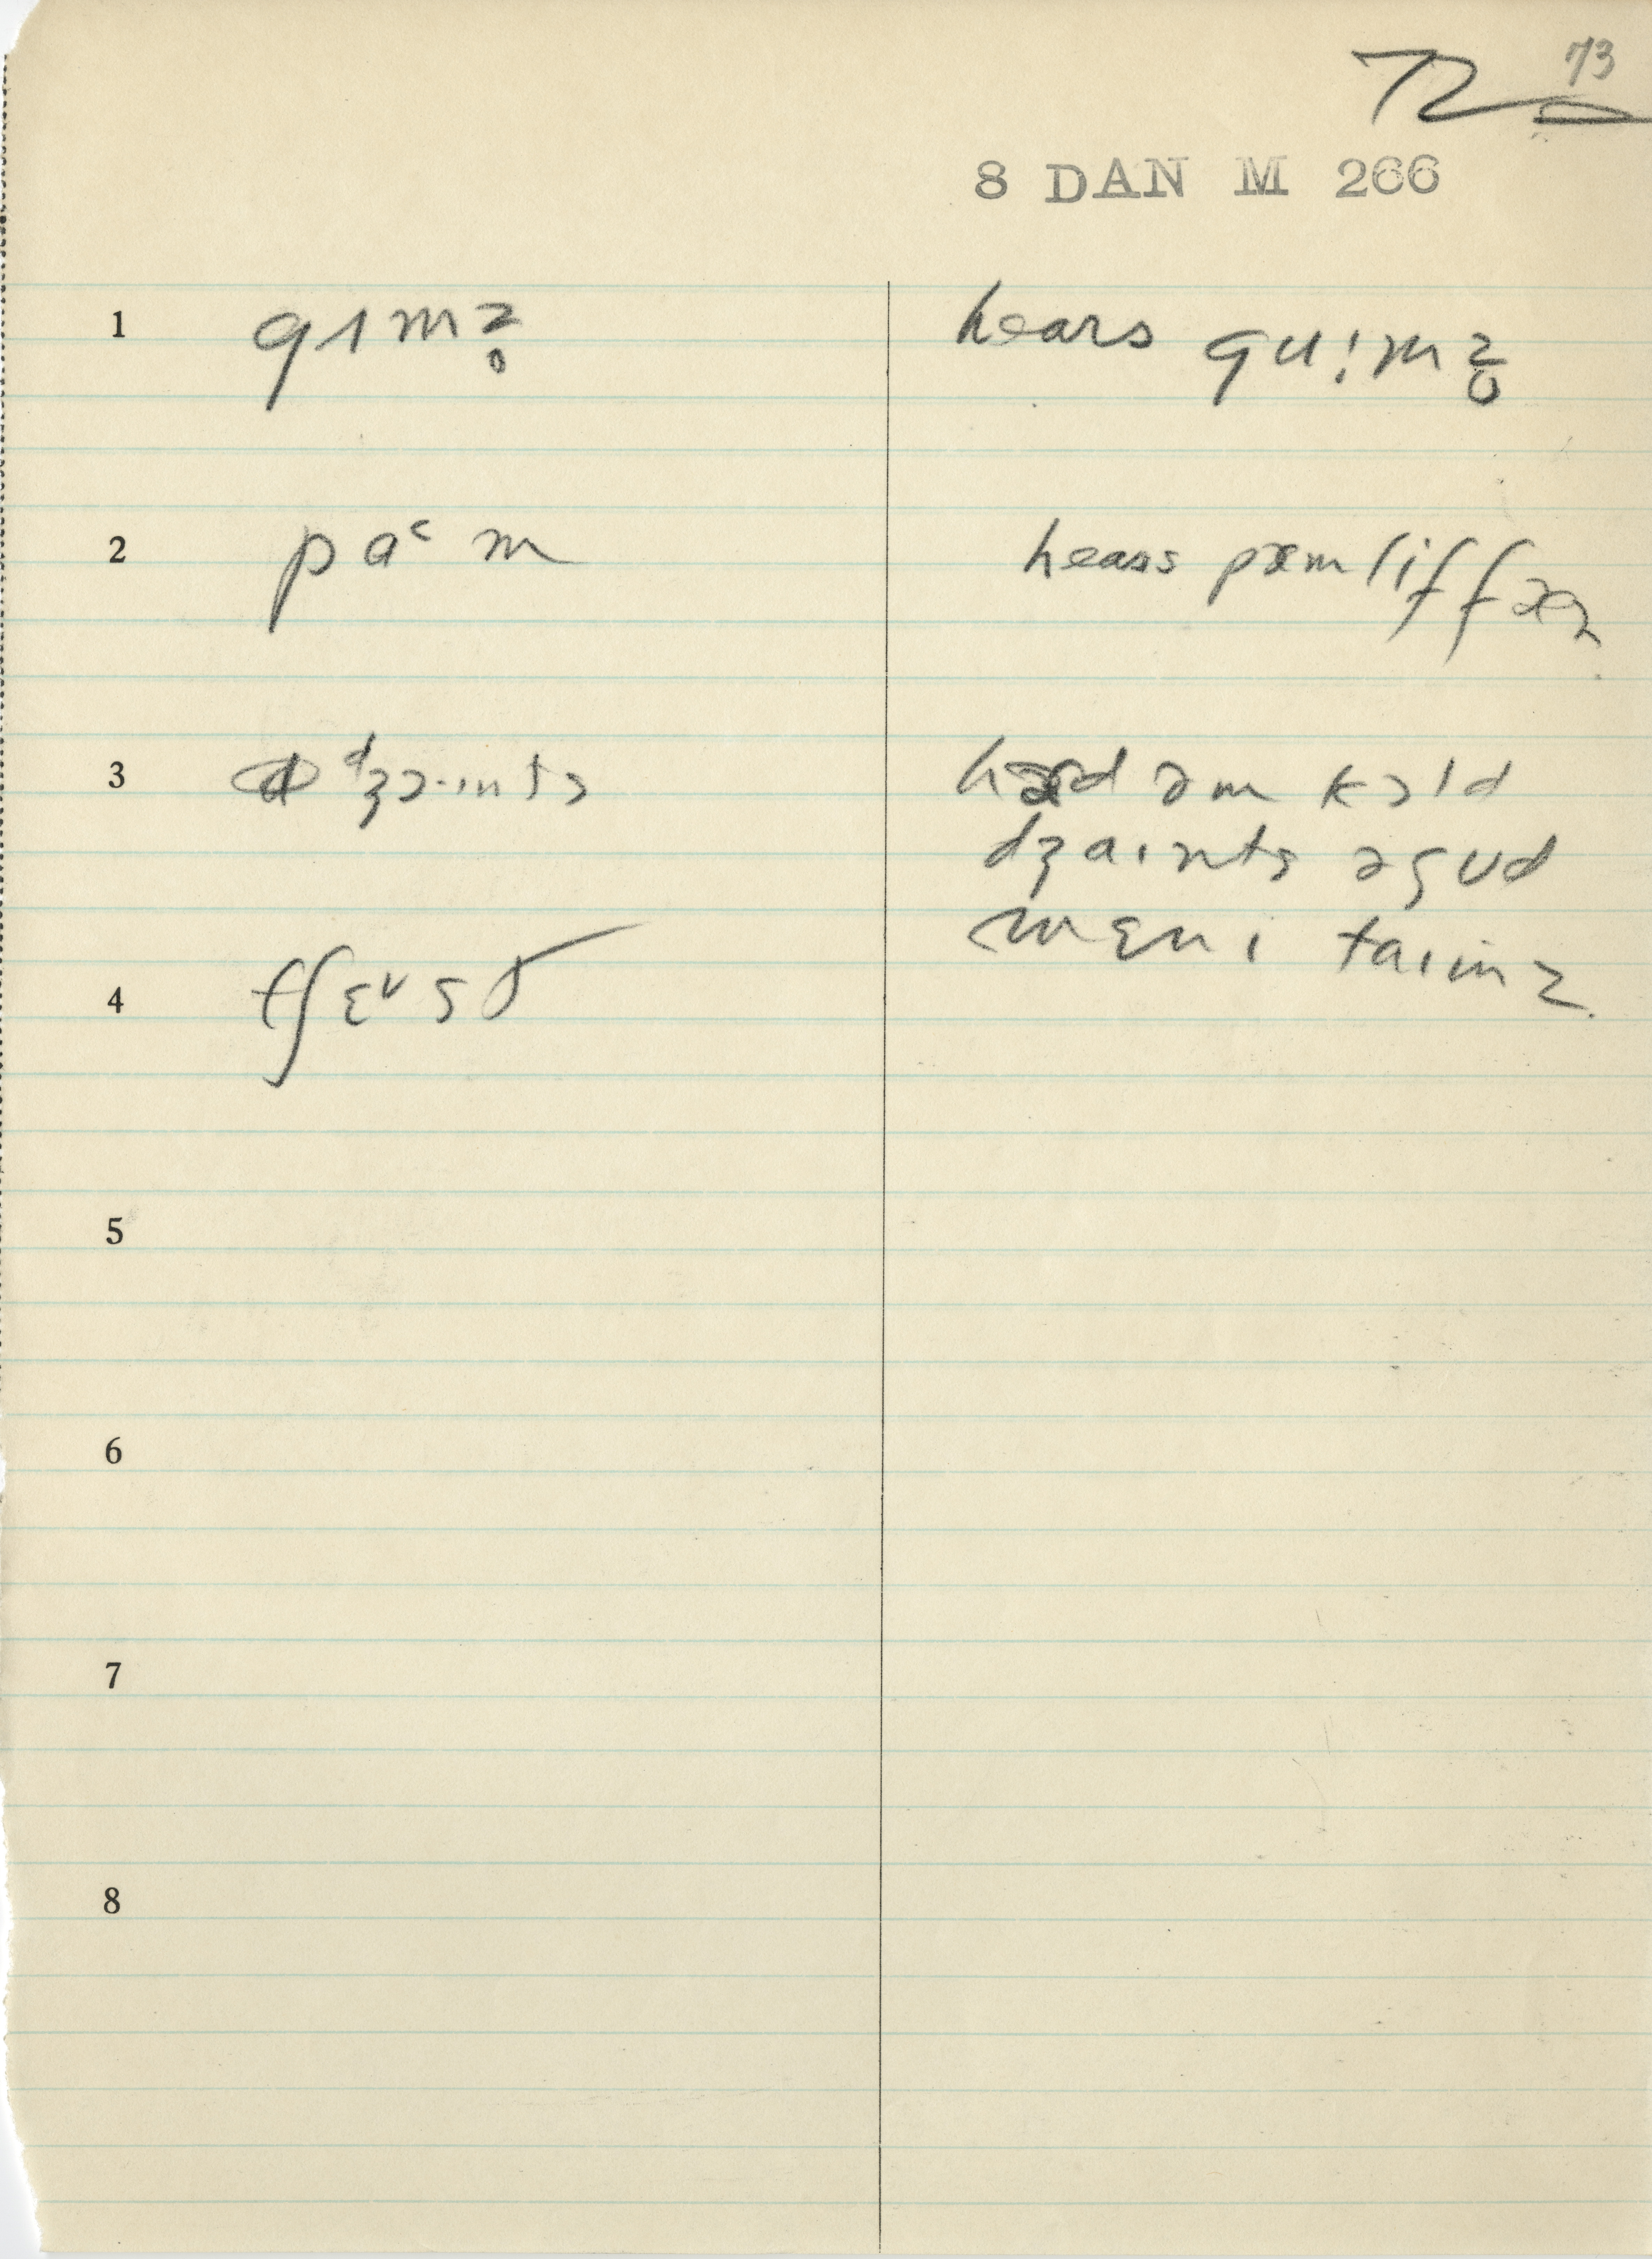 72 73
8 DAN M 266
1 gɪmz̥ hears gu!mz̥
2 paᶜm hears pæmlɪffæɹ
3 ᵈʒɔ·ɪnts hɜd əm kɔld
dʒaɪnts əgud
mɛnɪ taɪmz
4 tʃɛᵛsð
5
6
7
8